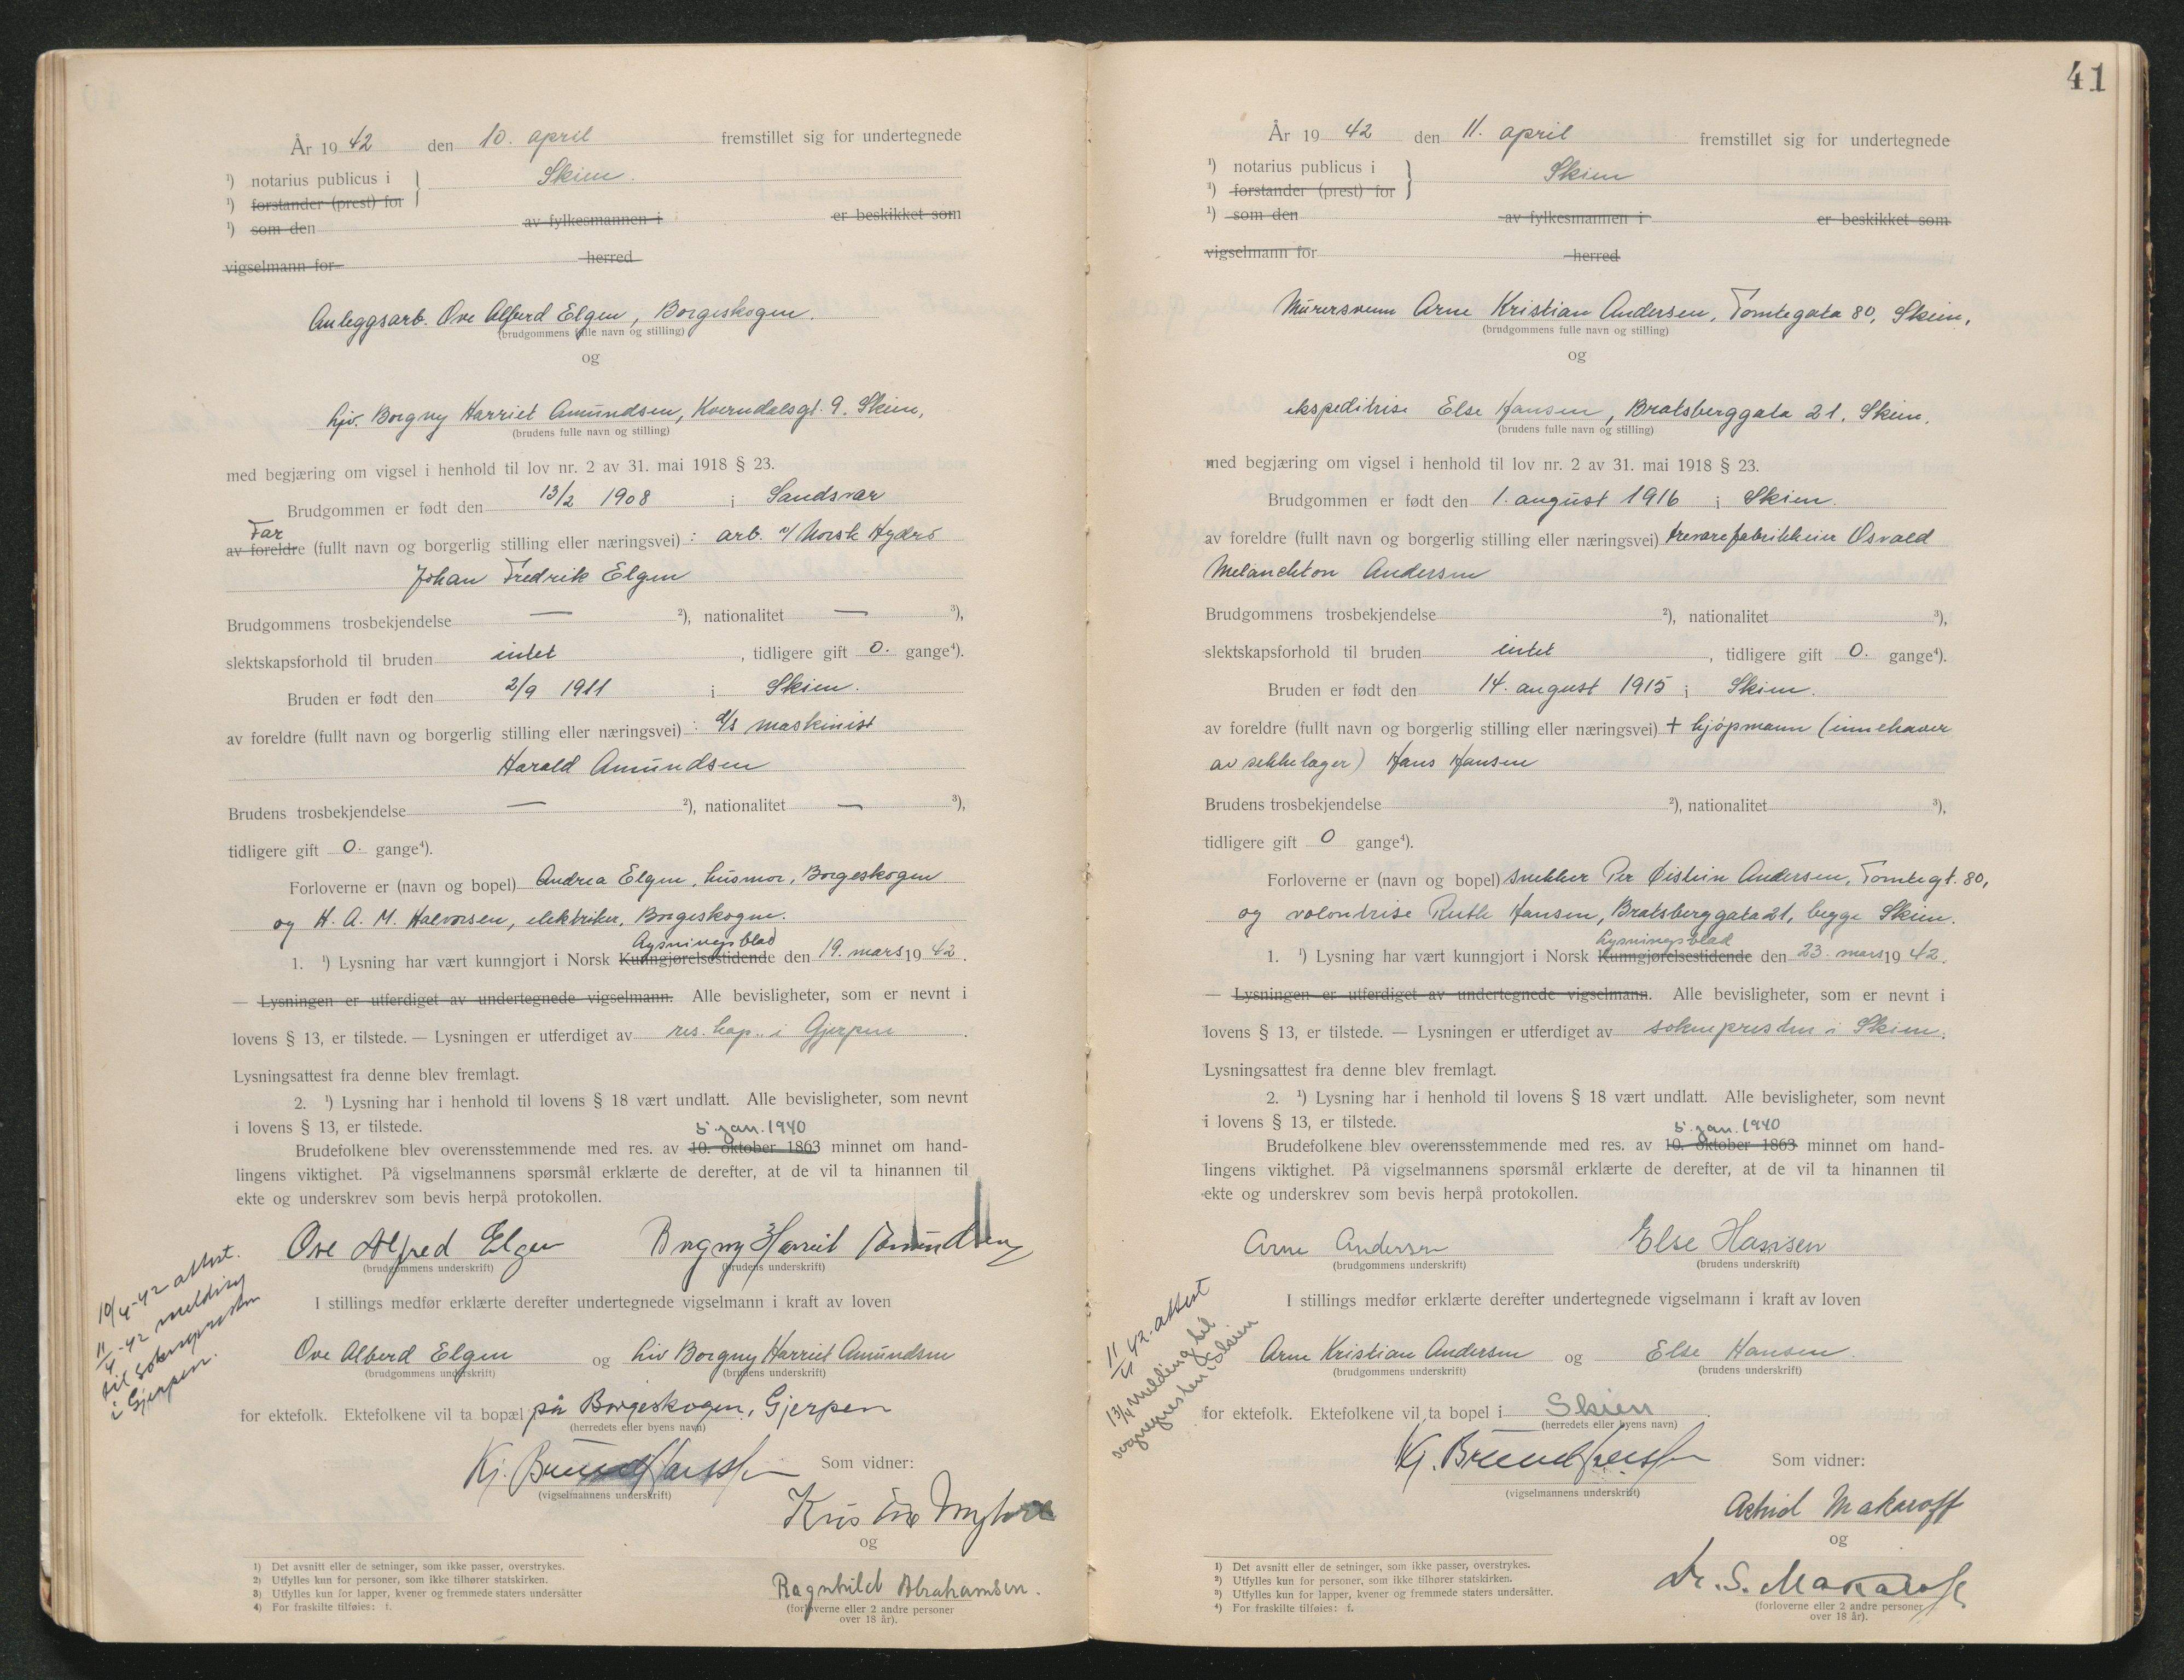 År 19 42 den 10. april fremstillet sig for undertegnede
¹) notarius publicus i Skien.
¹) forstander (prest) for
¹) som den av fylkesmannen i er beskikket som
vigselmann for herred
Anleggsarb. Ove Alferd Elgen, Borgeskogen.
(brudgommens fulle navn og stilling)
og
Liv. Borgny Harriet Amundsen, Kverndalsgt. 9. Skien,
(brudens fulle navn og stilling)
med begjæring om vigsel i henhold til lov nr. 2 av 31. mai 1918 § 23.
Brudgommen er født den 13/2 1908 i Sandsvær
Far
av foreldre (fullt navn og borgerlig stilling eller næringsvei) : arb. v/ Norsk Hydro
Johan Fredrik Elgen
Brudgommens trosbekjendelse — ²), nationalitet — ³),
slektskapsforhold til bruden intet , tidligere gift 0. gange⁴).
Bruden er født den 2/9 1911 i Skien.
av foreldre (fullt navn og borgerlig stilling eller næringsvei) : d/s maskinist
Harald Amundsen
Brudens trosbekjendelse — ²), nationalitet — ³),
tidligere gift 0. gange⁴).
Forloverne er (navn og bopel) Andrea Elgen, husmor, Borgeskogen
og H. A. M. Halvorsen, elektriker, Borgeskogen.
Lysningsblad
1. ¹) Lysning har vært kunngjort i Norsk Kunngjørelsestidende den 19. mars 19 42.
— Lysningen er utferdiget av undertegnede vigselmann. Alle bevisligheter, som er nevnt i
lovens § 13, er tilstede. — Lysningen er utferdiget av res. kap. i Gjerpen .
Lysningsattest fra denne blev fremlagt.
2. ¹) Lysning har i henhold til lovens § 18 vært undlatt. Alle bevisligheter, som nevnt
i lovens § 13, er tilstede.
5. jan. 1940
Brudefolkene blev overensstemmende med res. av 10. oktober 1863 minnet om hand-
lingens viktighet. På vigselmannens spørsmål erklærte de derefter, at de vil ta hinannen til
ekte og underskrev som bevis herpå protokollen.
Ove Alfred Elgen Borgny Harriet Amundsen
(brudgommens underskrift) (brudens underskrift)
10/4-42 attest.
11/4-42 melding
til soknepresten
i Gjerpen.
I stillings medfør erklærte derefter undertegnede vigselmann i kraft av loven
Ove Alberd Elgen og Liv Borgny Harriet Amundsen
(brudgommens underskrift) (brudens underskrift)
for ektefolk. Ektefolkene vil ta bopæl på Borgeskogen, Gjerpen
(herredets eller byens navn)
Kj. Brund Hanssen Som vidner:
(vigselmannens underskrift)
Kristine
og
Ragnhild Abrahamsen.
(forloverne eller 2 andre personer
over 18 år).
1) Det avsnitt eller de setninger, som ikke passer, overstrykes.
2) Utfylles kun for personer, som ikke tilhører statskirken.
3) Utfylles kun for lapper, kvener og fremmede staters undersåtter
4) For fraskilte tilføies: f.
41
År 19 42 den 11. april fremstillet sig for undertegnede
¹) notarius publicus i Skien
¹) forstander (prest) for
¹) som den av fylkesmannen i er beskikket som
vigselmann for herred
Murersvenn Arne Kristian Andersen, Tomtegata 80, Skien,
(brudgommens fulle navn og stilling)
og
ekspeditrise Else Hansen, Bratsberggata 21, Skien,
(brudens fulle navn og stilling)
med begjæring om vigsel i henhold til lov nr. 2 av 31. mai 1918 § 23.
Brudgommen er født den 1. august 1916 i Skien.
av foreldre (fullt navn og borgerlig stilling eller næringsvei) trevarefabrikkeier Osvald
Melanchton Andersen
Brudgommens trosbekjendelse ²), nationalitet ³),
slektskapsforhold til bruden intet , tidligere gift 0. gange⁴).
Bruden er født den 14. august 1915 i Skien.
av foreldre (fullt navn og borgerlig stilling eller næringsvei) + kjøpmann (innehaver
av sekkelager) Hans Hansen
Brudens trosbekjendelse ²), nationalitet ³),
tidligere gift 0 gange⁴).
Forloverne er (navn og bopel) snekker Per Øistein Andersen, Tomtegt. 80,
og volontrise Ruth Hansen, Bratsberggata 21, begge Skien.
Lysningsblad
1. ¹) Lysning har vært kunngjort i Norsk Kunngjørelsestidende den 23. mars 19 42.
— Lysningen er utferdiget av undertegnede vigselmann. Alle bevisligheter, som er nevnt i
lovens § 13, er tilstede. — Lysningen er utferdiget av soknepresten i Skien.
Lysningsattest fra denne blev fremlagt.
2. ¹) Lysning har i henhold til lovens § 18 vært undlatt. Alle bevisligheter, som nevnt
i lovens § 13, er tilstede.
5. jan. 1940
Brudefolkene blev overensstemmende med res. av 10. oktober 1863 minnet om hand-
lingens viktighet. På vigselmannens spørsmål erklærte de derefter, at de vil ta hinannen til
ekte og underskrev som bevis herpå protokollen.
Arne Andersen Else Hansen
(brudgommens underskrift) (brudens underskrift)
11/4 42. attest
13/4 melding til
sognepresten i Skien
I stillings medfør erklærte derefter undertegnede vigselmann i kraft av loven
Arne Kristian Andersen og Else Hansen.
(brudgommens underskrift) (brudens underskrift)
for ektefolk. Ektefolkene vil ta bopel i Skien .
(herredets eller byens navn)
Kj. Brund Hanssen Som vidner:
(vigselmannens underskrift)
Astrid Makaroff
og
Dr. S. Makaroff
(forloverne eller 2 andre personer
over 18 år).
1) Det avsnitt eller de setninger, som ikke passer, overstrykes.
2) Utfylles kun for personer, som ikke tilhører statskirken.
3) Utfylles kun for lapper, kvener og fremmede staters undersåtter.
4) For fraskilte tilføies: f.